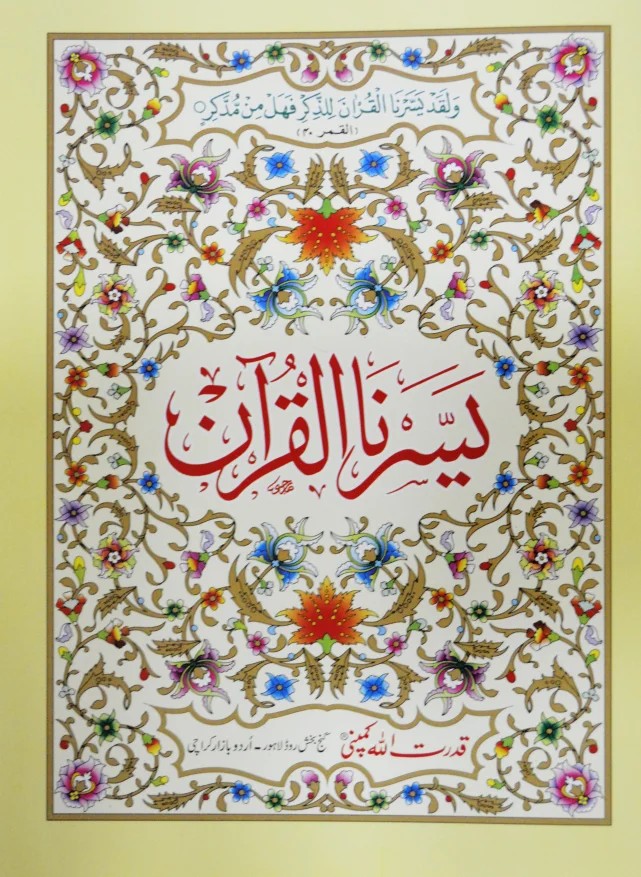 وَلَقَدْ يَسَّرْنَا الْقُرْاٰنَ لِلذِّكْرِ فَهَلْ مِنْ مُّدَّكِرٍ ○
(القمر ۴۰)
يَسَّرْنَا الْقُرْآن
قدرت اللہ کمپنی ® گنج بخش روڈ لاہور - اُردو بازار کراچی